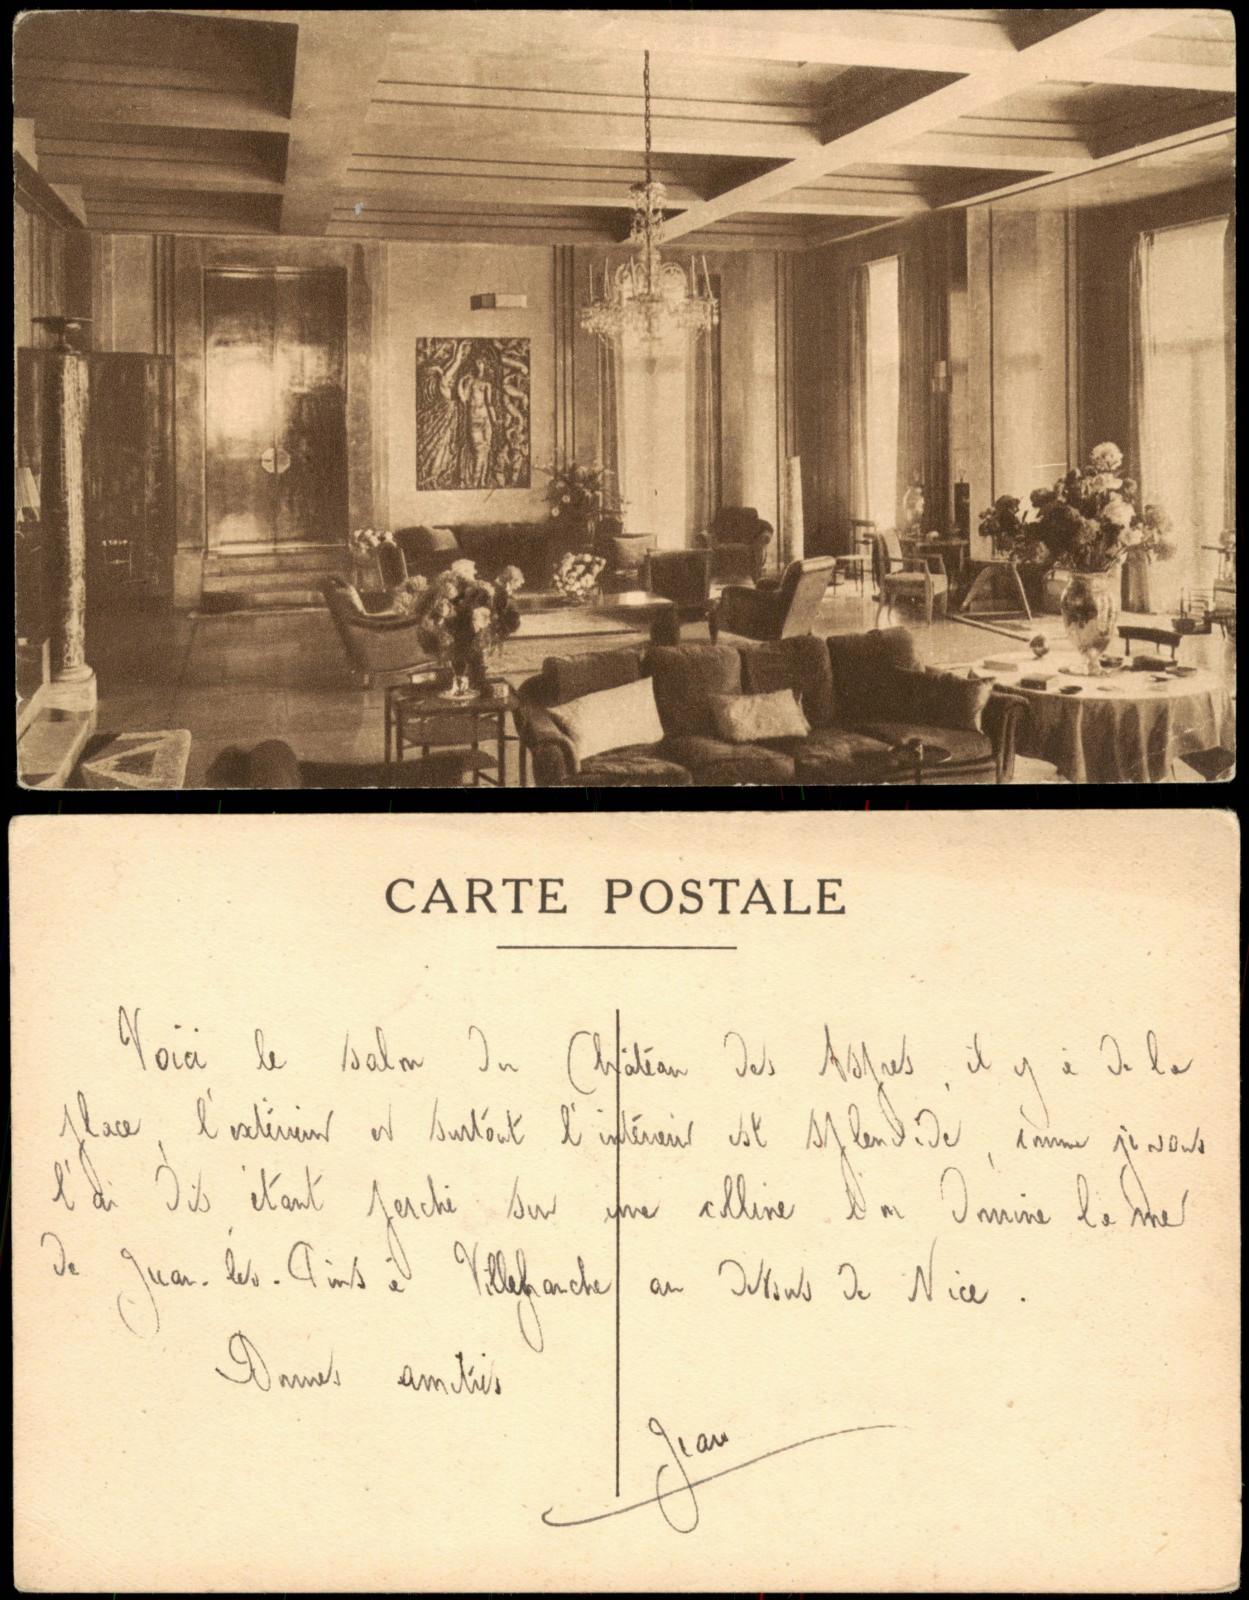 CARTE POSTALE
Voici le salon du Château des Aspres, il y a de la
place, l'extérieur et surtout l'intérieur est splendide, comme je vous
l'ai dis étant perché sur une colline l'on domine la mer
de Juan-les-Pins à Villefranche au dessus de Nice.
Bonnes amitiés
Jean